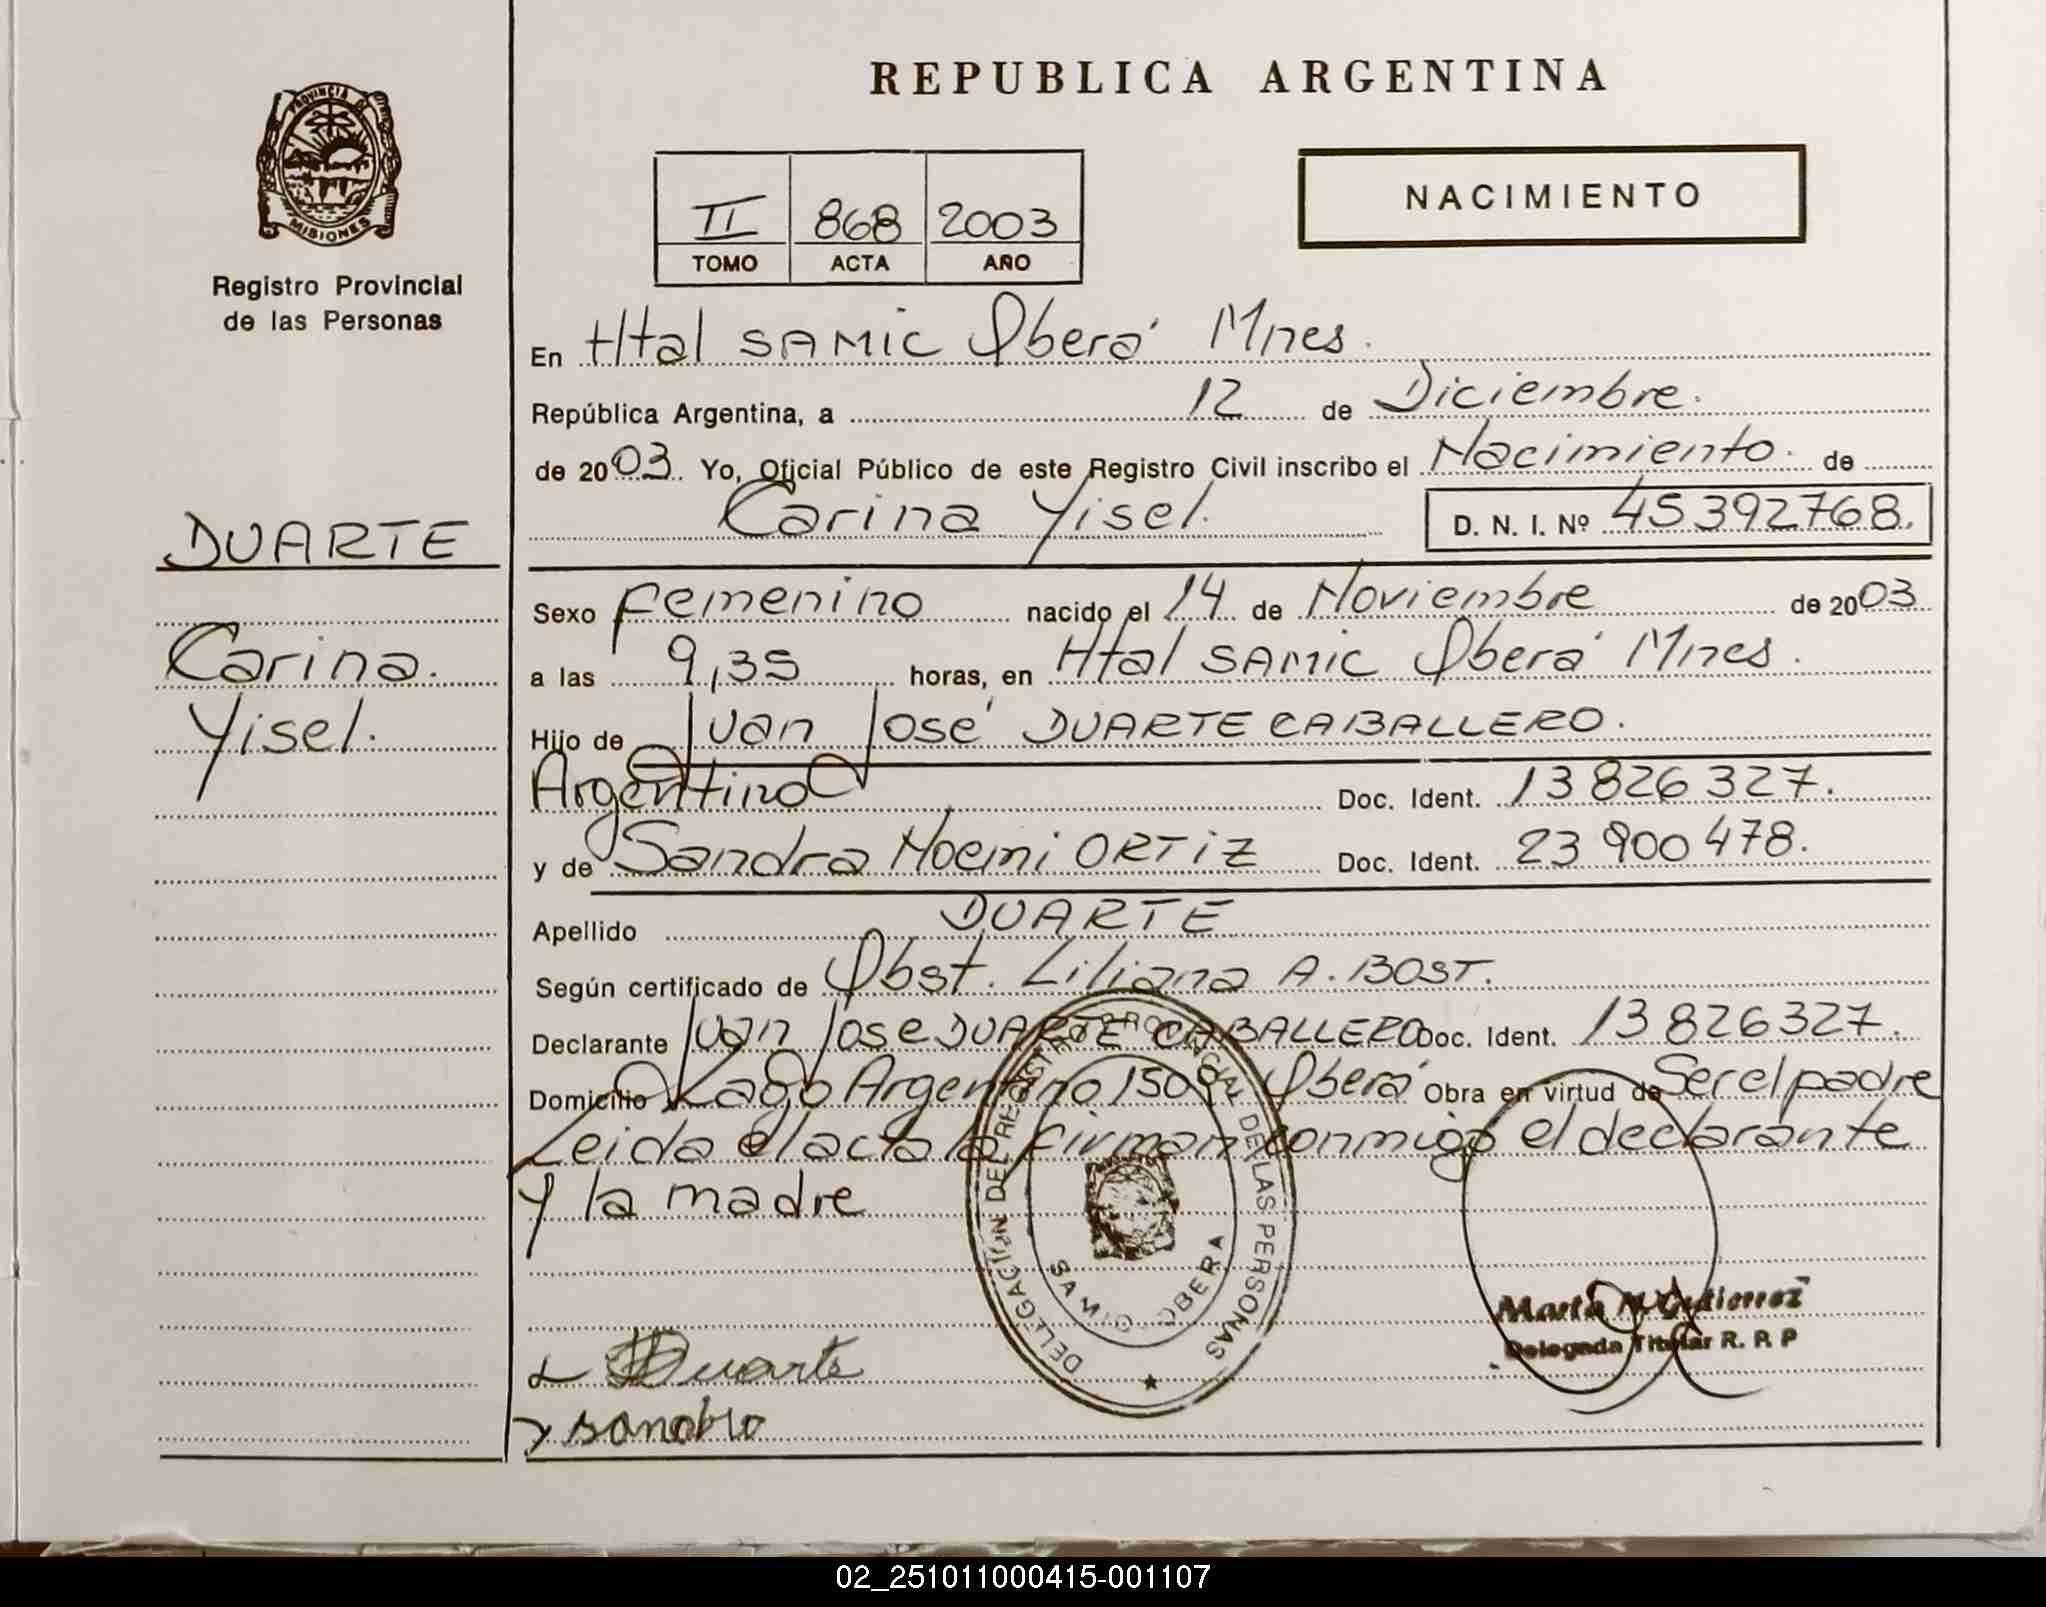 REPUBLICA ARGENTINA
PROVINCIA DE
MISIONES
Registro Provincial
de las Personas
NACIMIENTO
II 868 2003
TOMO ACTA AÑO
En Htal SAMIC Oberá Mnes.
República Argentina, a 12 de Diciembre.
de 2003. Yo, Oficial Público de este Registro Civil inscribo el Nacimiento. de
Carina Yisel. D. N. I. Nº 45392768.
DUARTE
Carina.
Yisel.
Sexo femenino nacido el 14 de Noviembre de 2003
a las 9,35 horas, en Htal SAMIC Oberá Mnes.
Hijo de Juan José DUARTE CABALLERO.
Argentino Doc. Ident. 13826327.
y de Sandra Noemi ORTIZ Doc. Ident. 23900478.
Apellido DUARTE
Según certificado de Obst. Liliana A. BOST.
Declarante Juan Jose DUARTE CABALLERO Doc. Ident. 13826327.
Domicilio Lago Argentino Oberá Obra en virtud de Ser el padre
Leida el acta la firman conmigo el declarante
y la madre
DELEGACION DEL REGISTRO PROVINCIAL DE LAS PERSONAS
SAMIC - OBERA
Marta N. Gutierrez
Delegada Titular R. P. P
Duarte
02_251011000415-001107